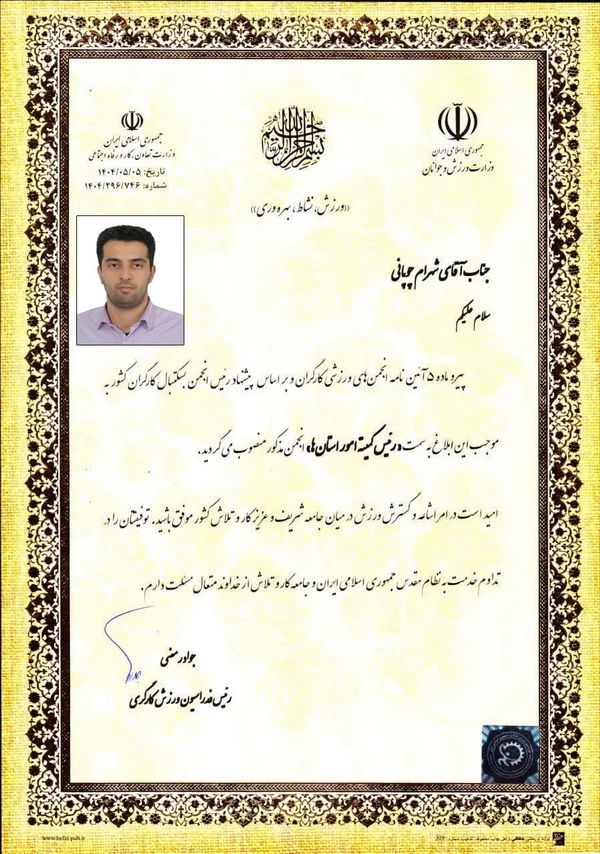 بسم الله الرحمن الرحیم
جمهوری اسلامی ایران
وزارت ورزش و جوانان
جمهوری اسلامی ایران
وزارت تعاون، کار و رفاه اجتماعی
تاریخ: ۱۴۰۴/۰۵/۰۵
شماره: ۱۴۰۴/۲۹۶/۷۴۶
((ورزش، نشاط، بهره وری))
جناب آقای شهرام چوپانی
سلام علیکم
پیرو ماده ۵ آئین نامه انجمن های ورزشی کارگران و بر اساس پیشنهاد رئیس انجمن بسکتبال کارگران کشور به
موجب این ابلاغ به سمت «رئیس کمیته امور استان ها» انجمن مذکور منصوب می گردید.
امید است در امر اشاعه و گسترش ورزش در میان جامعه شریف و عزیز کار و تلاش کشور موفق باشید. توفیقتان را در
تداوم خدمت به نظام مقدس جمهوری اسلامی ایران و جامعه کار و تلاش از خداوند متعال مسئلت دارم.
جواد رمضی
رئیس فدراسیون ورزش کارگری
www.hafzi-pub.ir